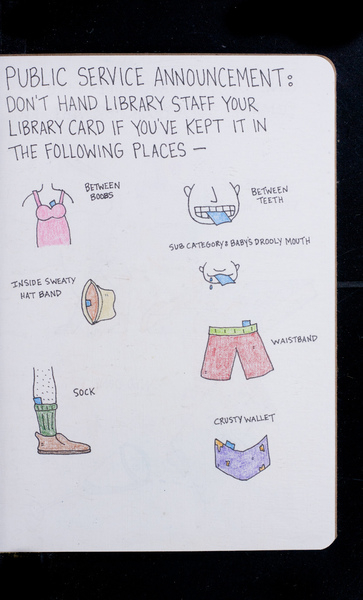 PUBLIC SERVICE ANNOUNCEMENT:
DON'T HAND LIBRARY STAFF YOUR
LIBRARY CARD IF YOU'VE KEPT IT IN
THE FOLLOWING PLACES —
BETWEEN
BOOBS
BETWEEN
TEETH
SUB CATEGORY: BABY'S DROOLY MOUTH
INSIDE SWEATY
HAT BAND
WAISTBAND
SOCK
CRUSTY WALLET